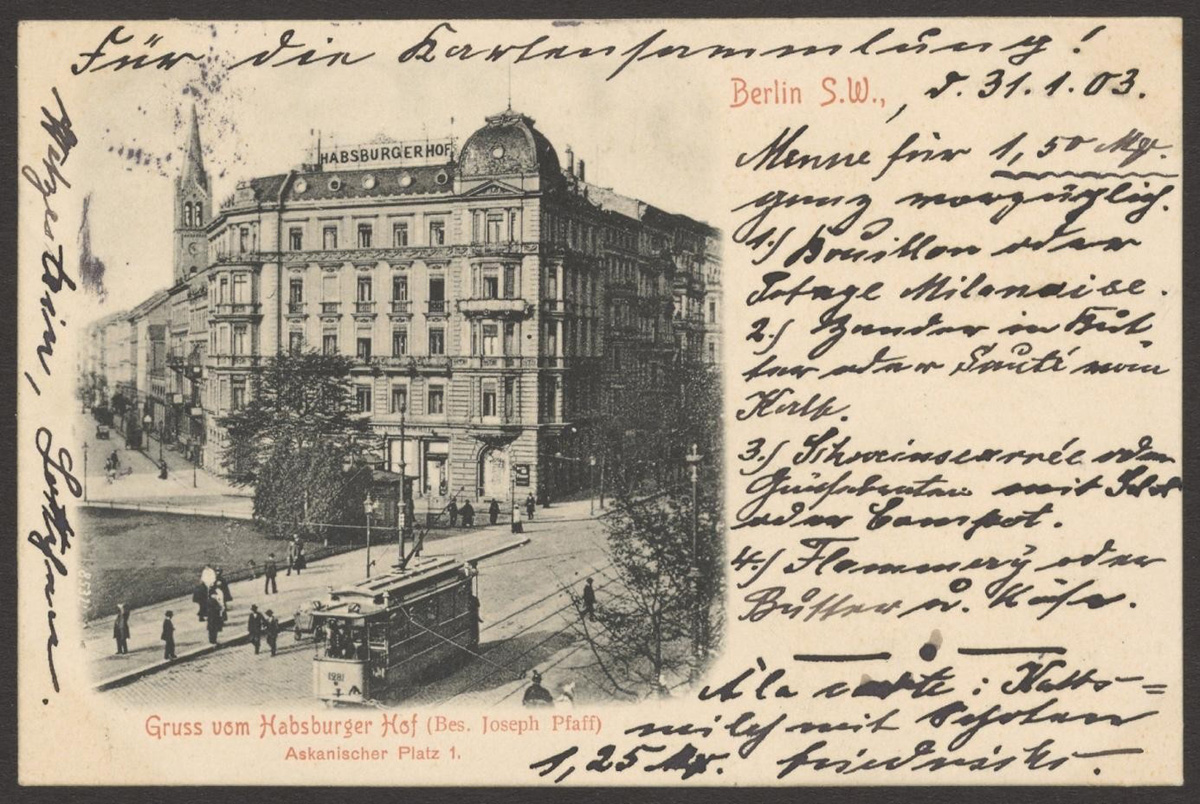 Für die Kartensammlung!
Berlin S.W., d. 31.1.03.
Menue für 1,50 Mk.
ganz vorzüglich.
1.) Bouillon oder
Potage Milanaise.
2.) Zander in But
ter oder Sauté vom
Kalb.
3.) Schweinscarrée oder
Gänsebraten mit Salat
oder Compot.
4.) Flammery oder
Butter u. Käse.
À la carte: Kalbs=
milch mit Schoten
1,25 Mk.
HABSBURGER HOF
1281
Gruss vom Habsburger Hof (Bes. Joseph Pfaff)
Askanischer Platz 1.